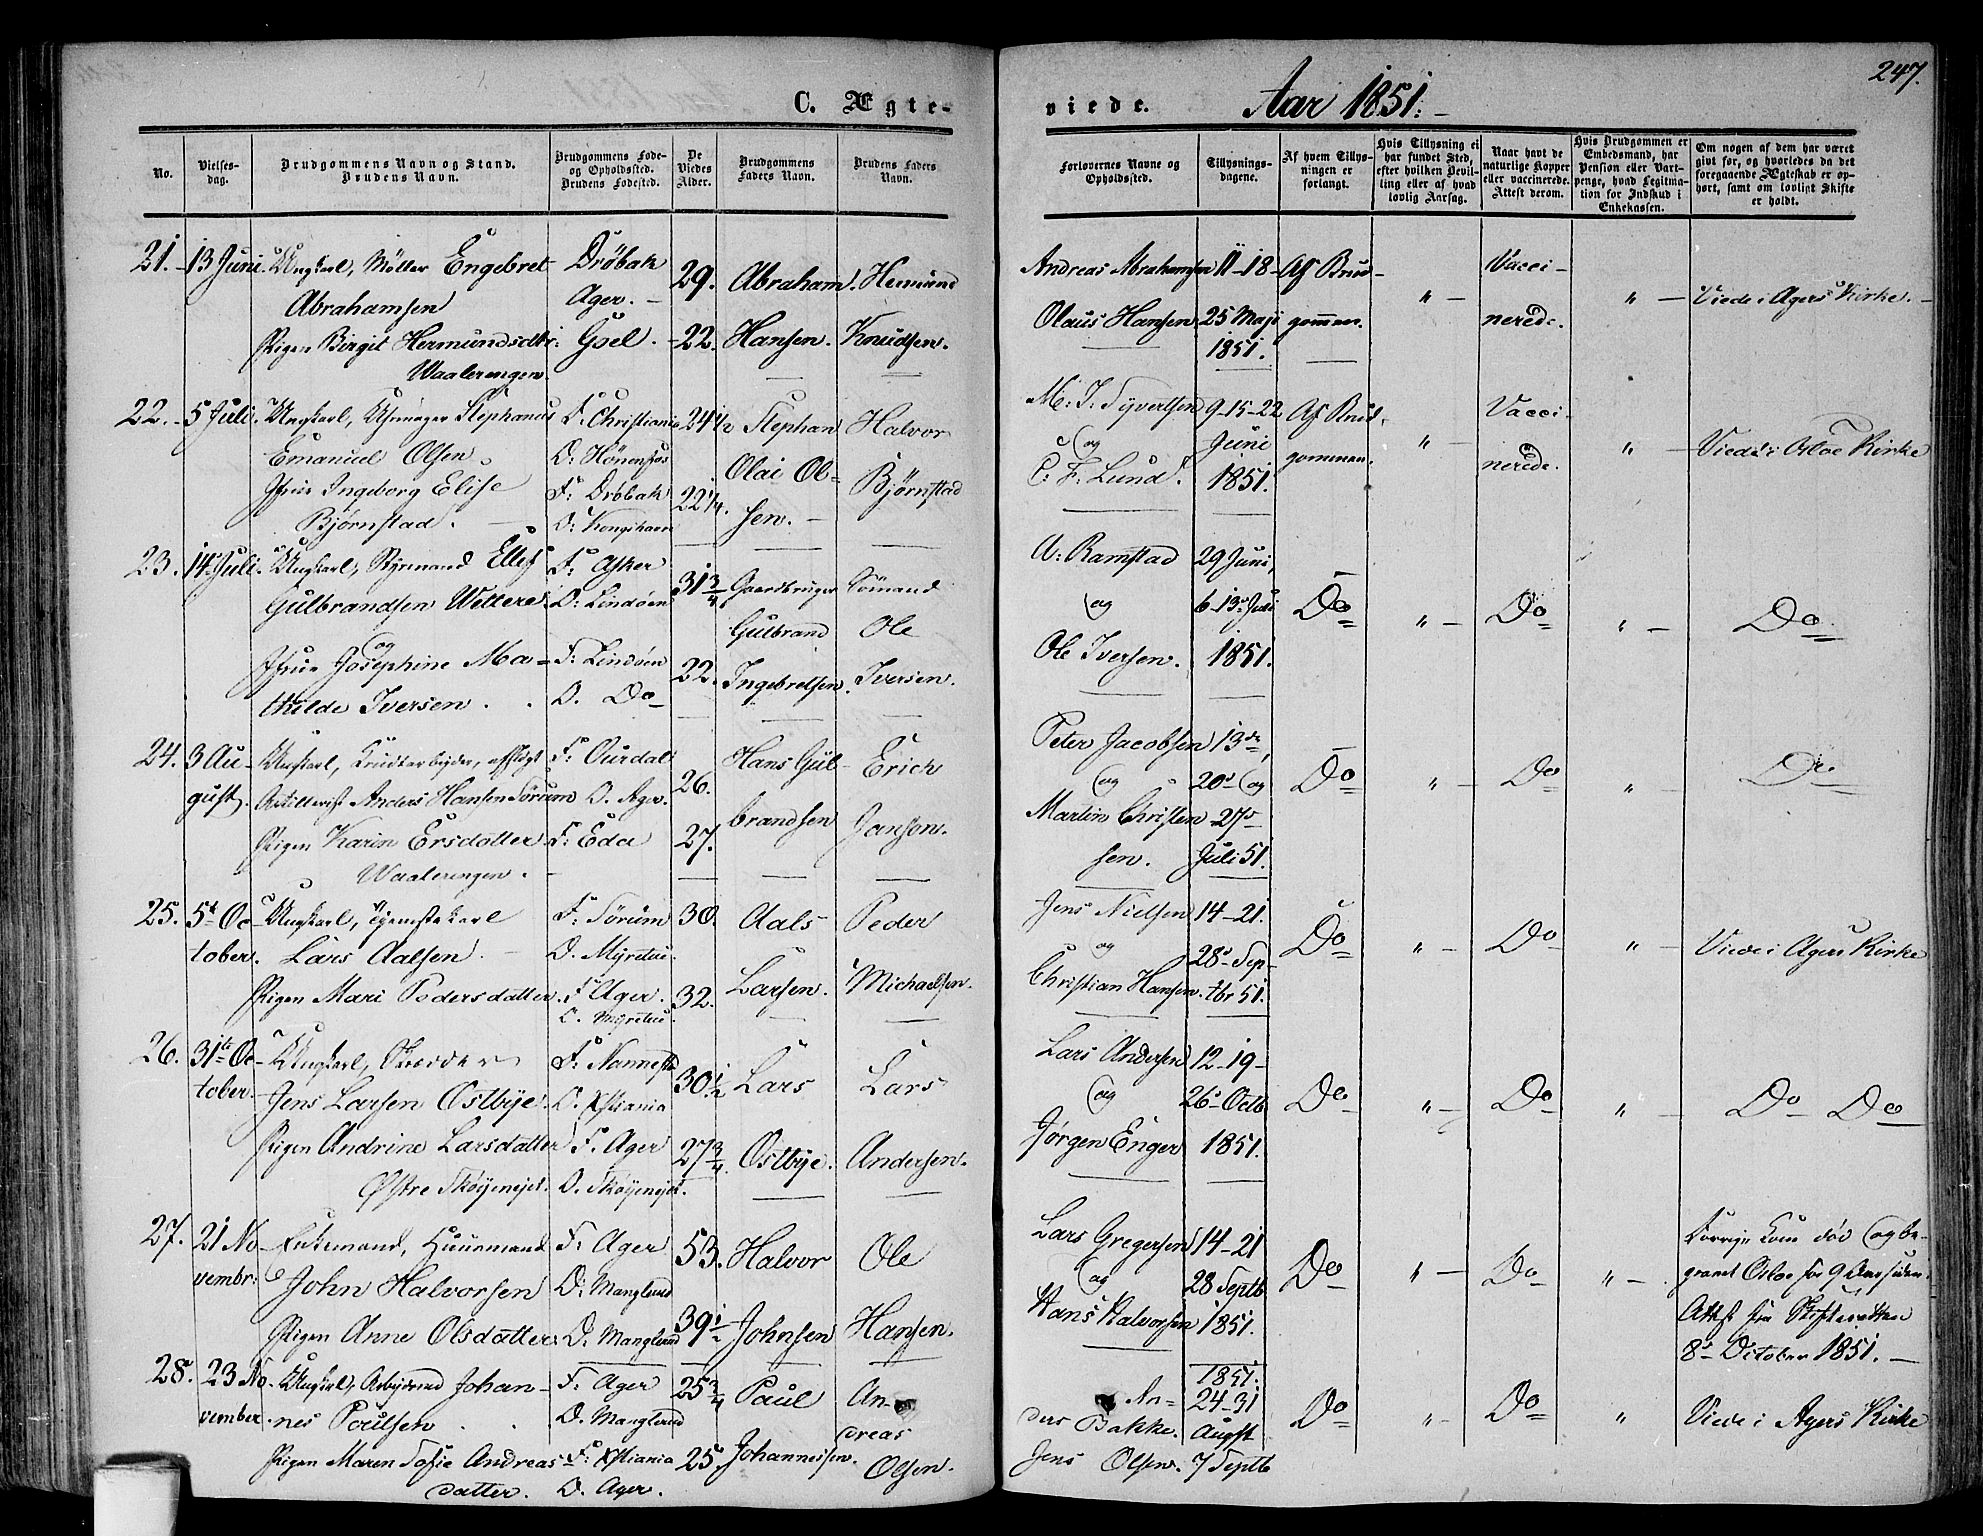 247.
C. Ægte-
viede. Aar 1851.
No.
Vielses-
dag.
Brudgommens Navn og Stand.
Brudens Navn.
Brudgommens Føde-
og Opholdssted.
Brudens Fødested.
De
Viedes
Alder.
Brudgommens
Faders Navn.
Brudens Faders
Navn.
Forlovernes Navne og
Opholdssted.
Tillysnings-
dagene.
Af hvem Tillys-
ningen er
forlangt.
Hvis Tillysning ei
har fundet Sted,
efter hvilken Bevil-
ling eller af hvad
lovlig Aarsag.
Naar havt de
naturlige Kopper
eller vaccinerede.
Attest derom.
Hvis Brudgommen er
Embedsmand, har
Pension eller Vart-
penge, hvad Legitima-
tion for Indskud i
Enkekassen.
Om nogen af dem har været
givt før, og hvorledes da det
foregaaende Ægteskab er op-
hørt, samt om lovligt Skifte
er holdt.
21. 13 Juni. Ungkarl, Møller Engebret
Abrahamsen
Pigen Birgit Hermundsdtr:
Waalerengen.
Drøbak
Ager.
Goel.
29.
22.
Abraham
Hansen.
Hermund
Knudsen.
Andreas Abrahamsen
Olaus Hansen
11-18-
25 Maji
1851.
Af Brud-
gommen.
"
Vacci-
nerede.
"
Viede i Agers Kirke.
22. 5 Juli. Ungkarl, Uhrmager Stephanus
Emanuel Olsen
Jfrue Ingeborg Elise
Bjørnstad.
F: Christiania
O: Hønenfos
F: Drøbak
O: Kongshavn
24 1/2
22 1/4.
Stephan
Olai Ol-
sen.
Halvor
Bjørnstad
M: J. Syvertsen
og
C. F. Lund.
9-15-22
Juni
1851.
Af Brud-
gommen.
"
Vacci-
nerede.
"
Viede i Osloe Kirke
23. 14 Juli. Ungkarl, Styrmand Ellef
Gulbrandsen Wettere
og
Jfrue Josephine Ma-
thilde Iversen.
F: Asker
O: Lindøen
F. Lindøen
O. Do
31 3/4
22.
Gaardbruger
Gulbrand
Ingebretsen
Sømand
Ole
Iversen.
A: Ramstad
og
Ole Iversen.
29 Juni,
6-13 Juli
1851.
Do
"
Do
"
Do
24. 3 Au-
gust.
Ungkarl, Krudtarbeider, afskediget
Artillerist Anders Hansen Sørum
Pigen Karin Ersdatter
Waalerengen.
F: Ourdal
O. Ager.
F: Eda
26.
27.
Hans Gul-
brandsen
Erich
Janson.
Peter Jacobsen
og
Martin Christen-
sen.
13de,
20 og
27
Juli 51.
Do
"
Do
"
Do
25. 5t Oc-
tober.
Ungkarl, Tjenestekarl
Lars Aalsen.
Pigen Mari Pedersdatter.
F: Sørum
O. Myretue.
F. Ager.
O. Myretue.
30.
32.
Aals
Larsen.
Peder
Michaelsen.
Jens Nielsen
og
Christian Hansen.
14-21.
28 Sep-
tbr 51.
Do
"
Do
"
Viede i Agers Kirke
26. 31te Oc-
tober
Ungkarl, Skræder
Jens Larsen Ostbye.
Pigen Andrine Larsdatter
Østre Skøyenejet.
F: Nannestd
O. Xstiania
F. Ager
O. Skøyenejet.
30 1/2
27 3/4.
Lars
Ostbye.
Lars
Andersen.
Lars Andersen
og
Jørgen Enger
12-19-
26 Octb
1851.
Do
"
Do
"
Do Do
27. 21 No-
vembr:
Enkemand, Huusmand
John Halvorsen
Pigen Anne Olsdatter
F: Ager
O: Manglerud
O. Manglerud
53.
39 1/2
Halvor
Johnsen
Ole
Hansen.
Lars Gregersen
og
Hans Halvorsen
14-21
28 Septb
1851.
Do
"
Do
"
Forrige Kone død og be-
gravet Osloe for 9 Aar siden.
Attest fra Skifteretten
8 October 1851.
28. 23 No-
vember.
Ungkarl, Arbeidsmd Johan-
nes Poulsen
Pigen Maren Sofie Andreas-
datter.
F. Ager
O. Manglerud
F: Xstiania
O. Ager.
25 3/4
25.
Paul
Johannessen.
An-
dreas
Olsen.
An-
ders Bakke.
Jens Olsen.
1851.
24-31
August
7 Septb
Do
"
Do
"
Viede i Agers Kirke